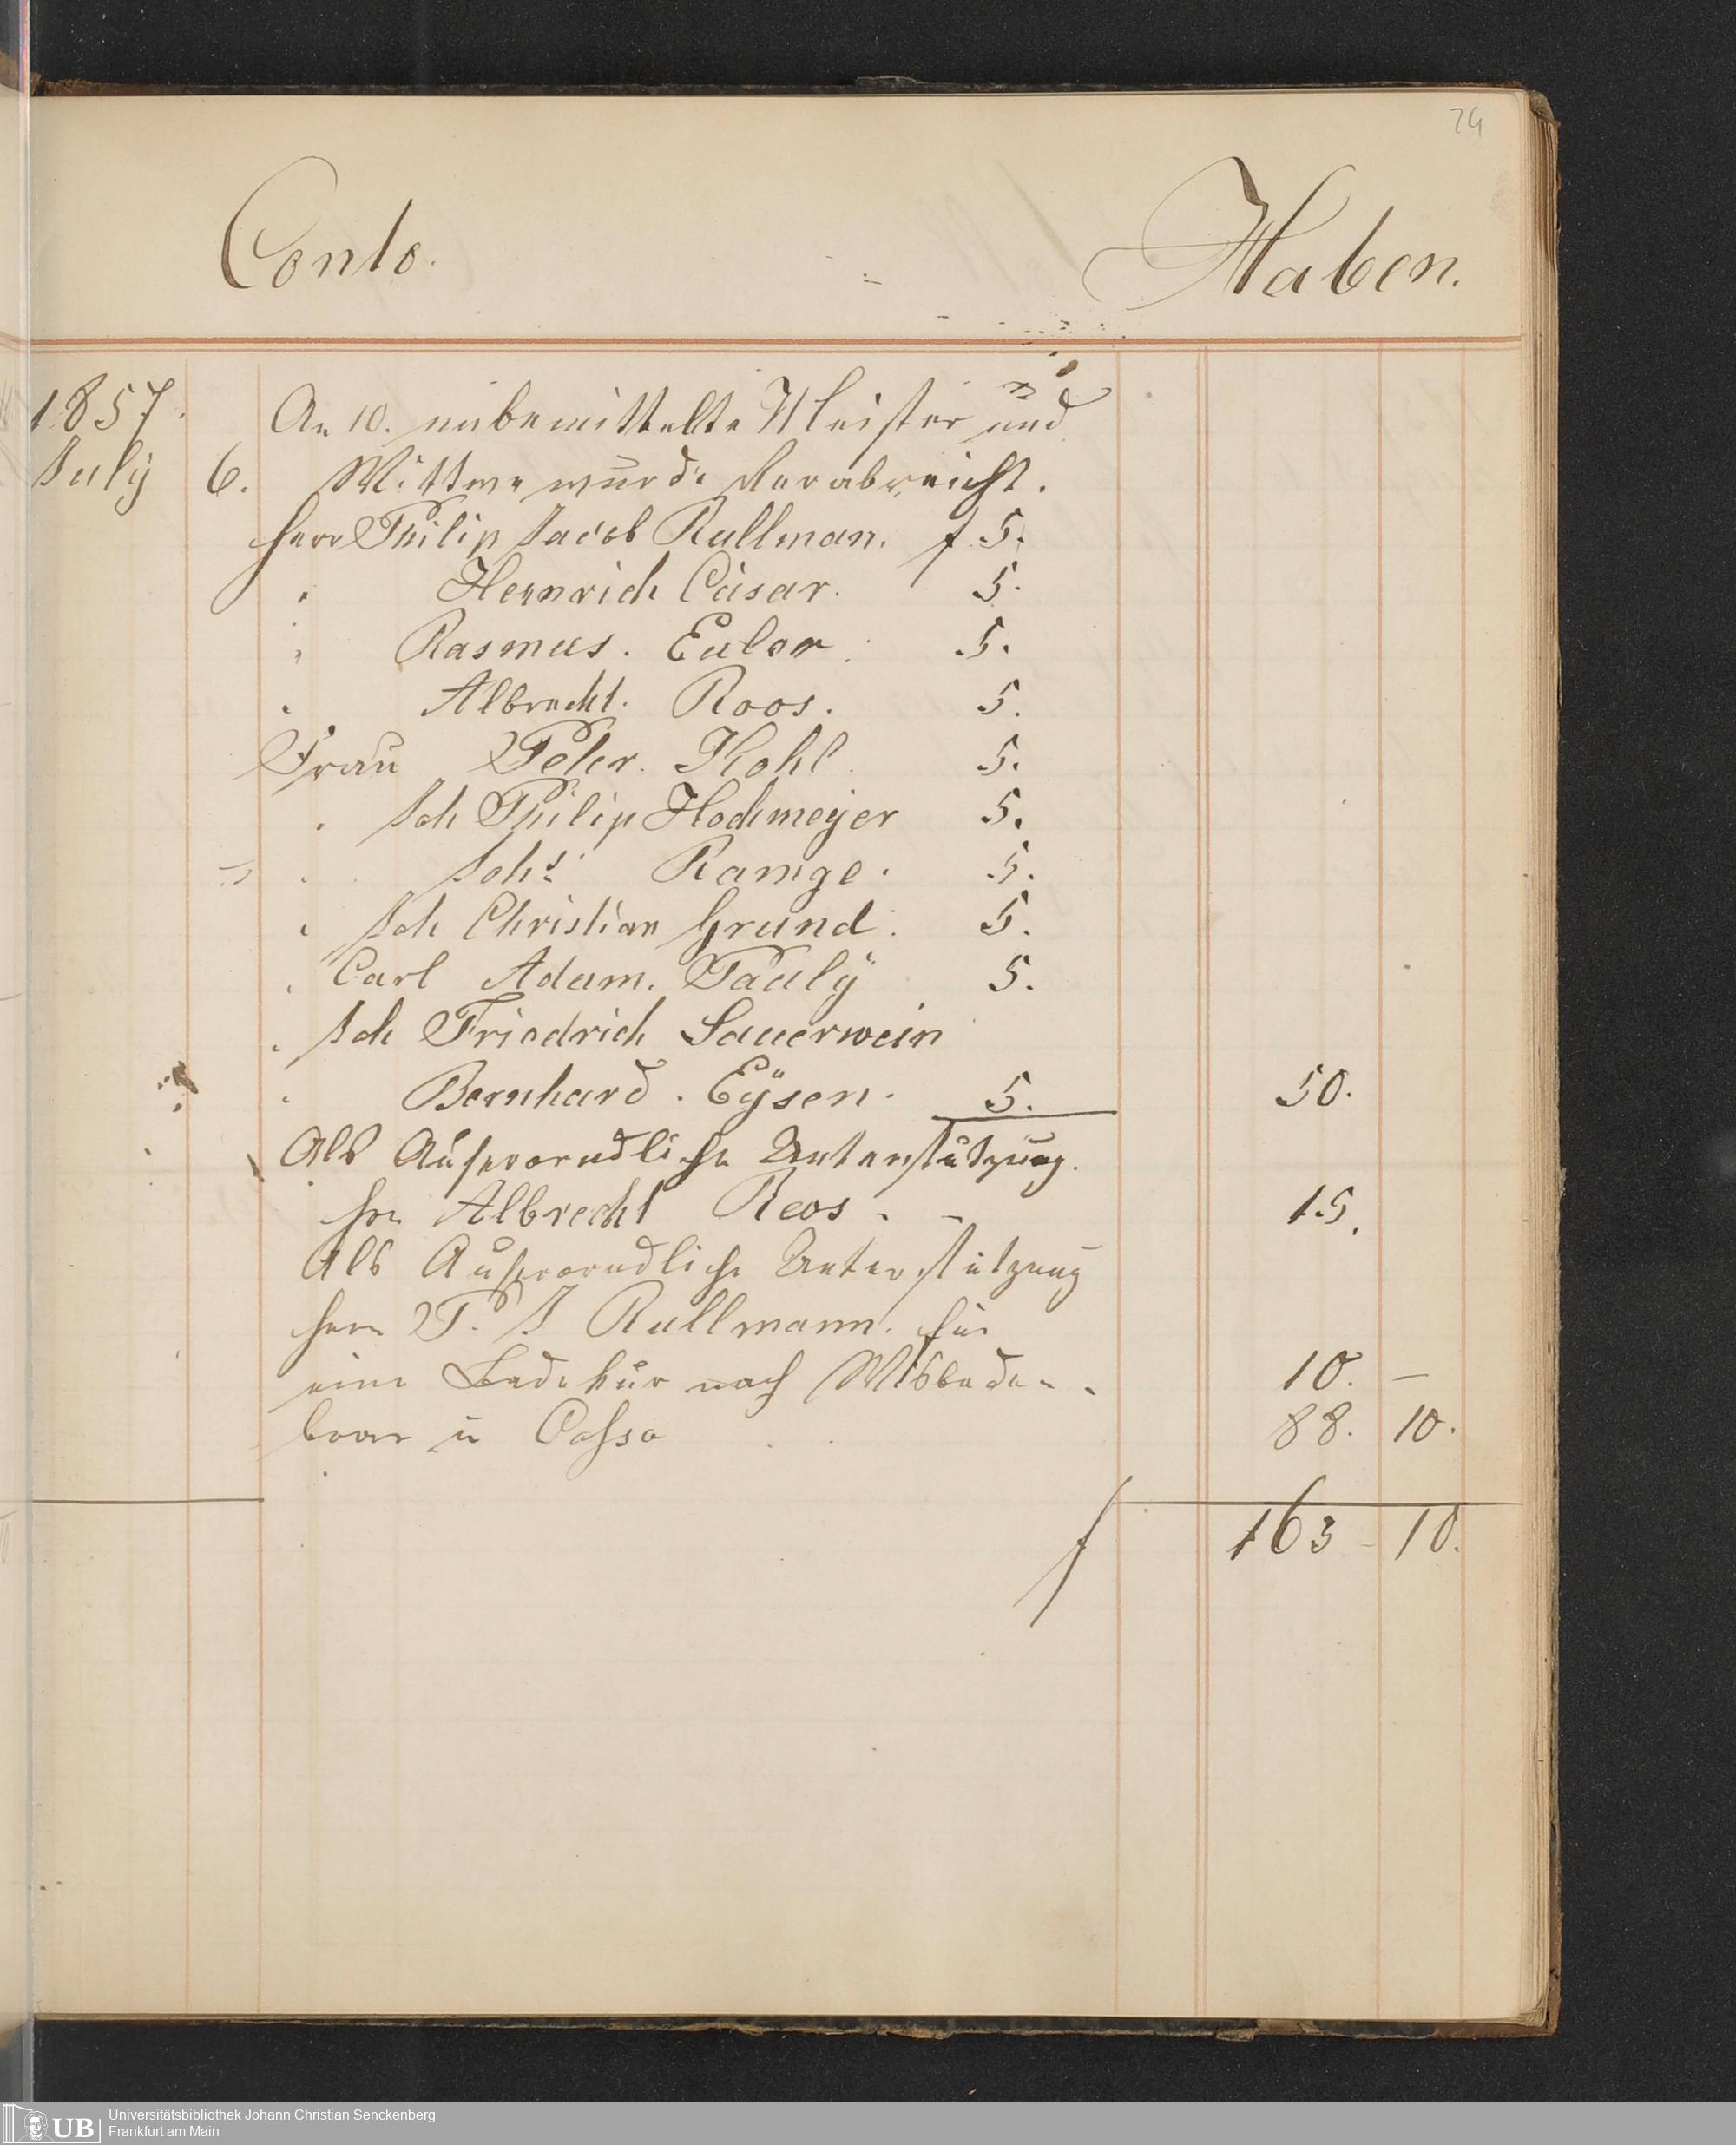 74
Conto. Haben.
1857. An 10. unbemittelte Meister und
July 6. Wittwe wurde verabreicht.
Herr Philip Jacob Rullman. f 5.
" Heinrich Cäsar. 5.
" Rasmus. Euler. 5.
" Albrecht. Roos. 5.
Frau Peter. Kohl 5.
" Joh Philip Hochmeyer 5.
" Johs Ramge. 5.
" Joh Christian Grund. 5.
" Carl Adam. Pauly 5.
" Joh Friedrich Sauerwein
" Bernhard. Eysen. 5. 50.
Als Ausserordliche Unterstützung.
Hrn Albrecht Roos. - 15.
Als Ausserordliche Unterstützung
Herrn P. J Rullmann. für
eine Badekur nach Wisbaden. 10. –
baar in Cassa 88. 10.
f 163 - 10.
UB Universitätsbibliothek Johann Christian Senckenberg
Frankfurt am Main